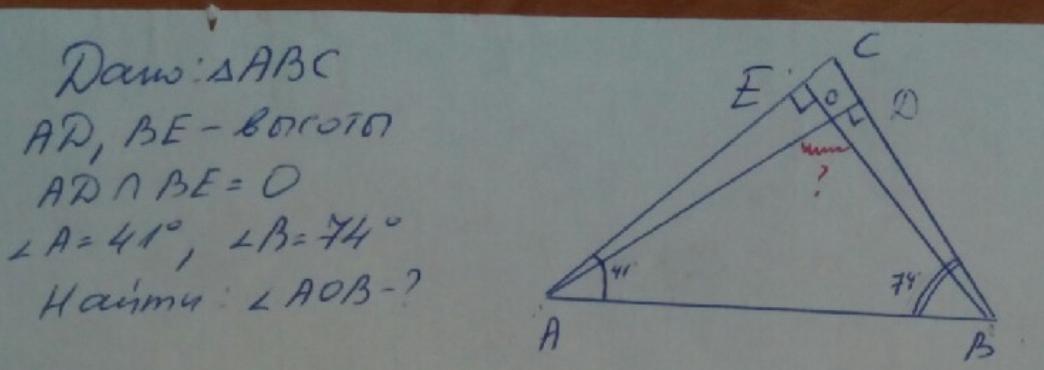 Дано: △ABC
AD, BE - высоты
AD ∩ BE = O
∠A = 41°, ∠B = 74°
Найти: ∠AOB - ?
C
E
O
D
?
41
74
A
B